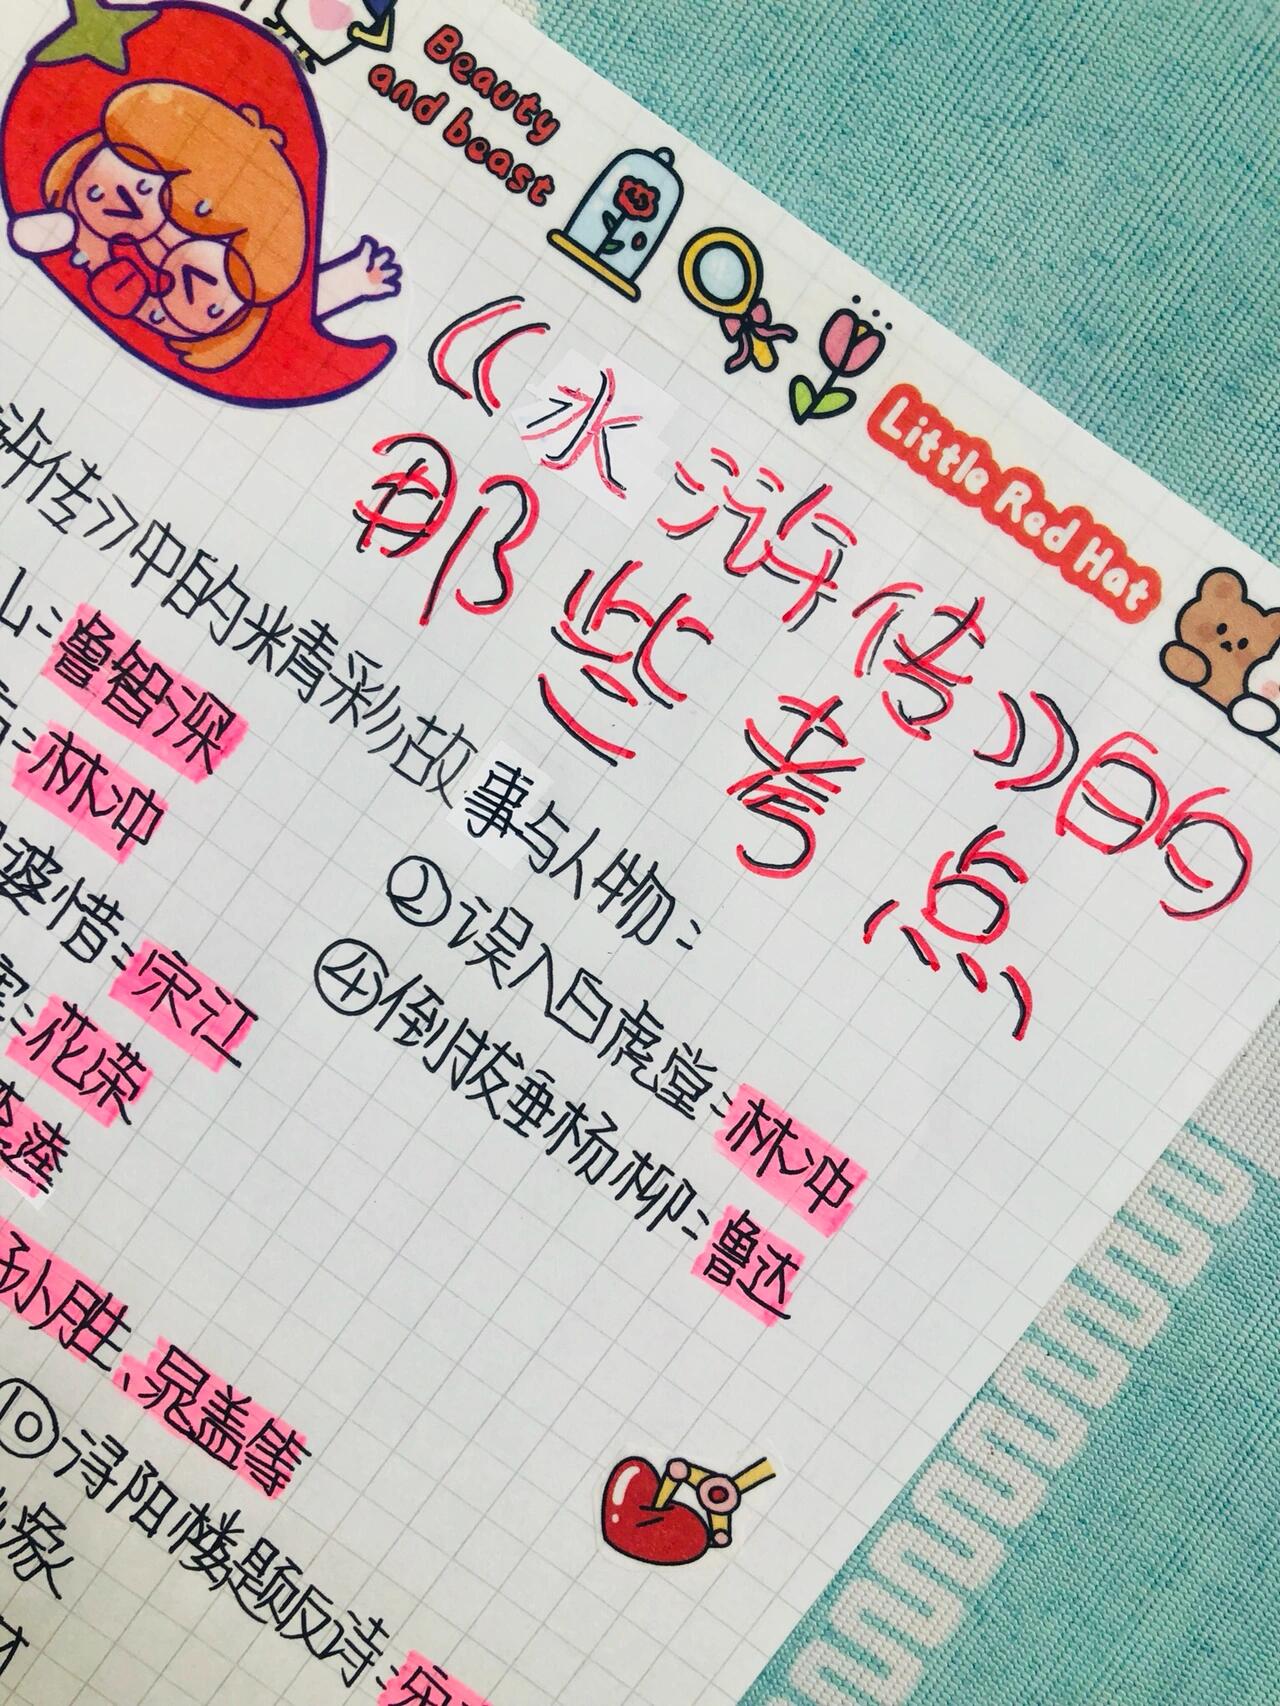 Beauty
and beast
Little Red Hat
《水浒传》的
那些考点
浒传》中的精彩故事与人物：
山：鲁智深
②误入白虎堂：林冲
：林冲
④倒拔垂杨柳：鲁达
婆惜：宋江
：花荣
逵
孙胜、晁盖等
⑩浔阳楼题反诗：宋
象